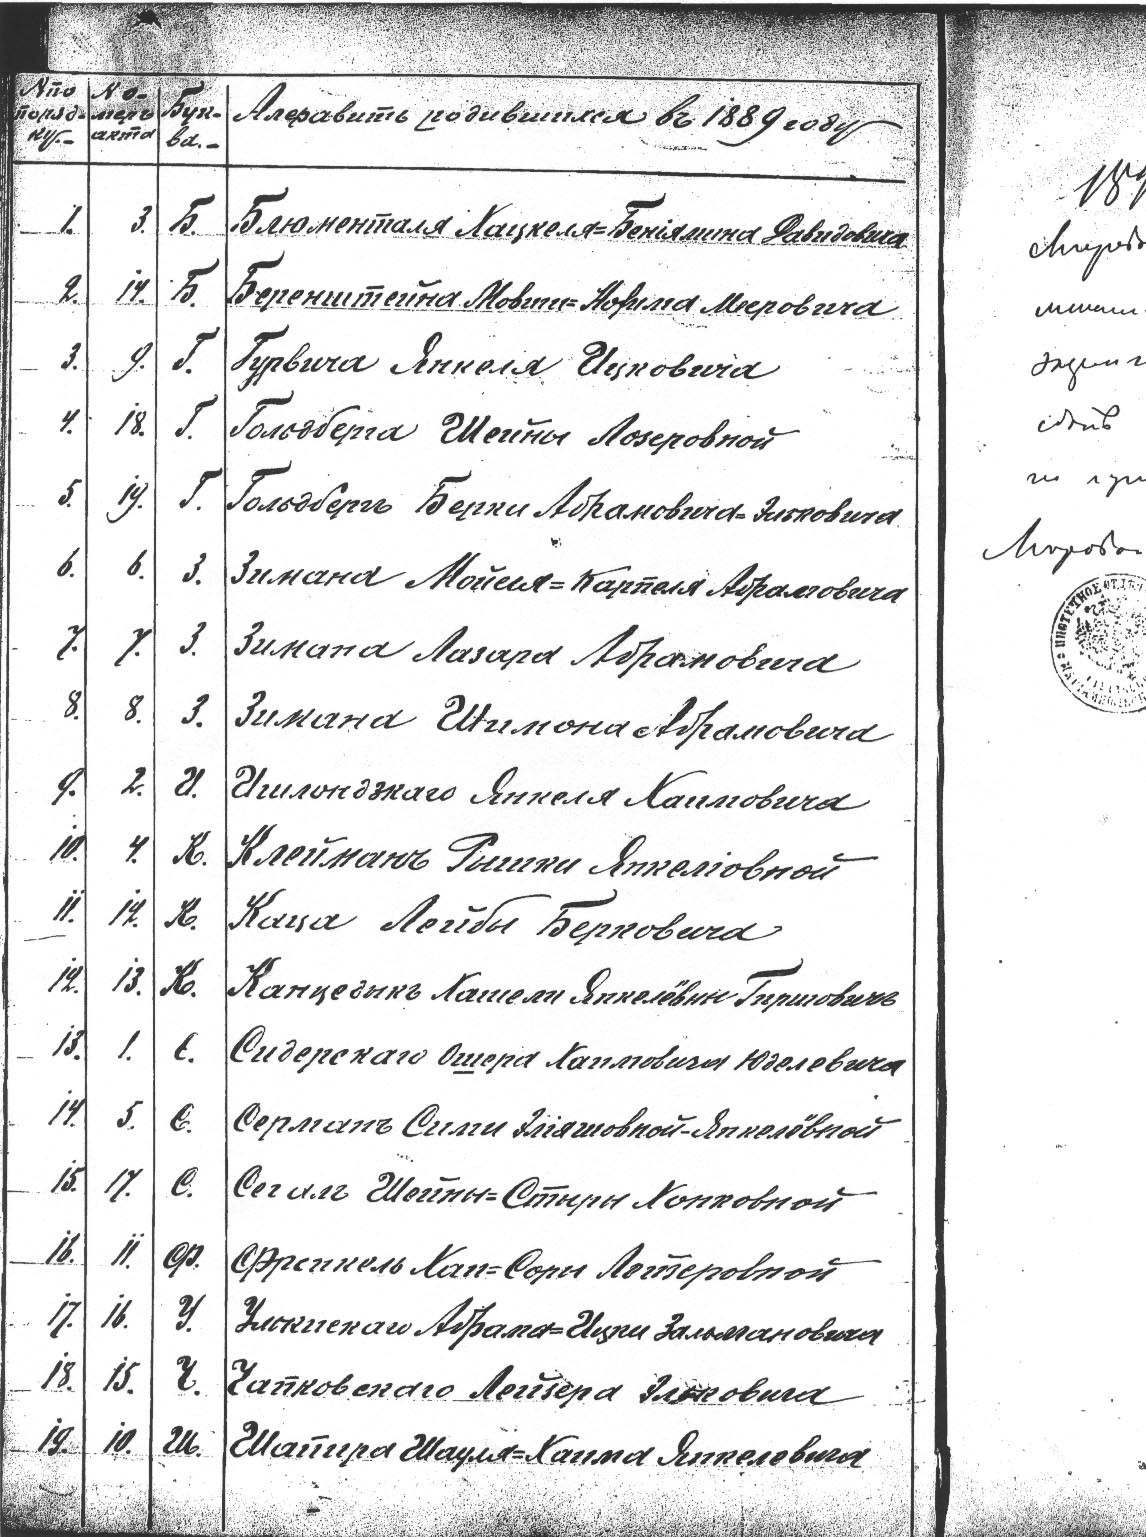 № по
поряд-
ку.-
Но-
меръ
акта
Бук-
ва.-
Алфавитъ родившихся въ 1889 году
1. 3. Б. Блюменталя Хацкеля=Беніямина Давидовича
2. 14. Б. Беренштейна Мовши= Меровича
3. 9. Г. Гурвича Янкеля Ицковича
4. 18. Г. Гольдберга Шейны Лозеровной
5. 19. Г. Гольдбергъ Берки Абрамовича= Эльковича
6. 6. З. Зимана Мойсея= Абрамовича
7. 7. З. Зимана Лазара Абрамовича
8. 8. З. Зимана Шимона Абрамовича
9. 2. И. Янкеля Хаимовича
10. 4. К. Клейманъ Янкеліовной
11. 12. К. Каца Лейбы Берковича
12. 13. К. Янкелёвны Гиршовичъ
13. 1. С. Сидерскаго Ошера Хаимовича Юделевича
14. 5. С. Серманъ Сими Эліяшовной-Янкелёвной
15. 17. С. Сегалъ Шейны=Стыры Хонковной
16. 11. Ф. Френкель Хаи=Соры Лейзеровной
17. 16. У. Абрама=Ицки Зальмановича
18. 15. Ч. Чапковскаго Лейзера Эльковича
19. 10. Ш. Шапира Шауля=Хаима Янкелевича